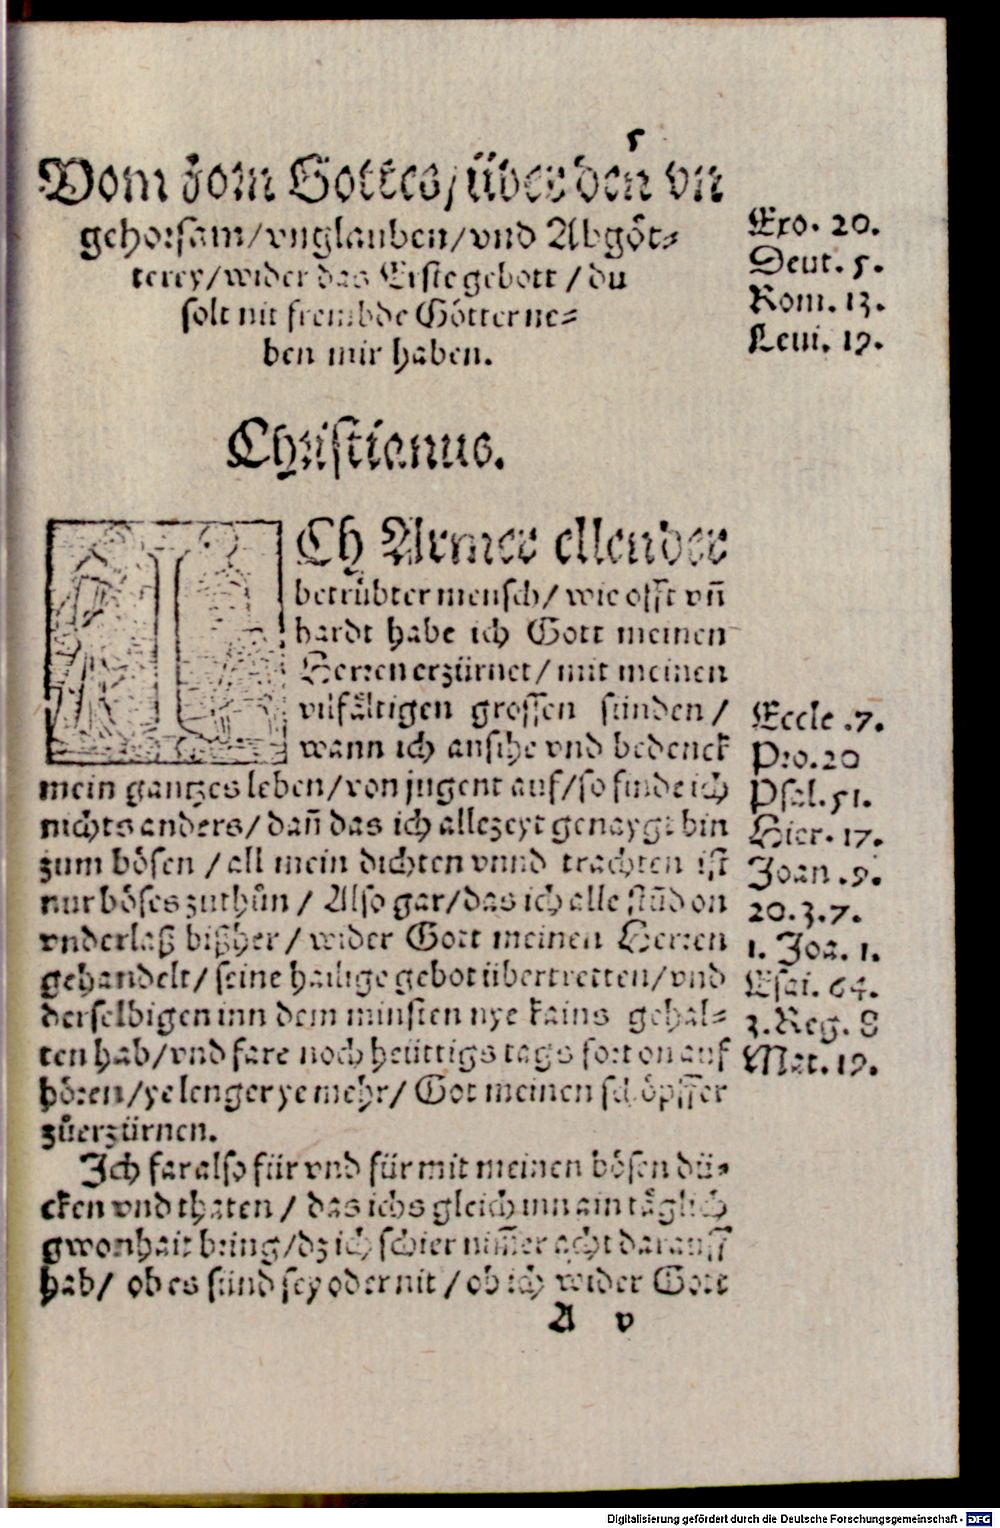 5
Vom zorn Gottes/ über den vn
gehorsam/ vnglauben/ vnd Abgöt⸗
terey/ wider das Erste gebott / du
solt nit frembde Götter ne⸗
ben mir haben.
Exo. 20.
Deut. 5.
Rom. 13.
Leui. 19.
Christianus.
ICh Armer ellender
betrübter mensch/ wie offt vñ
hardt habe ich Gott meinen
Herren erzürnet/ mit meinen
vilfältigen grossen sünden /
wann ich ansihe vnd bedenck
mein gantzes leben/ von jugent auf/ so finde ich
nichts anders/ dañ das ich allezeyt genaygt bin
zum bösen / all mein dichten vnnd trachten ist
nur böses zuthůn / Also gar/ das ich alle stūd on
vnderlaß bißher/ wider Gott meinen Herren
gehandelt/ seine hailige gebot übertretten/ vnd
derselbigen inn dem minsten nye kains gehal⸗
ten hab/ vnd fare noch heüttigs tags fort on auf
hören/ ye lenger ye mehr/ Got meinen schöpffer
zůerzürnen.
Ich far also für vnd für mit meinen bösen dü⸗
cken vnd thaten / das ichs gleich inn ain täglich
gwonhait bring/ dz ich schier nim̄er acht darauff
hab/ ob es sünd sey oder nit / ob ich wider Gott
Eccle .7.
Pro. 20
Psal. 51.
Hier. 17.
Joan .9.
20. 3. 7.
1. Joa. 1.
Esai. 64.
3. Reg. 8
Mat. 19.
A v
Digitalisierung gefördert durch die Deutsche Forschungsgemeinschaft - DFG